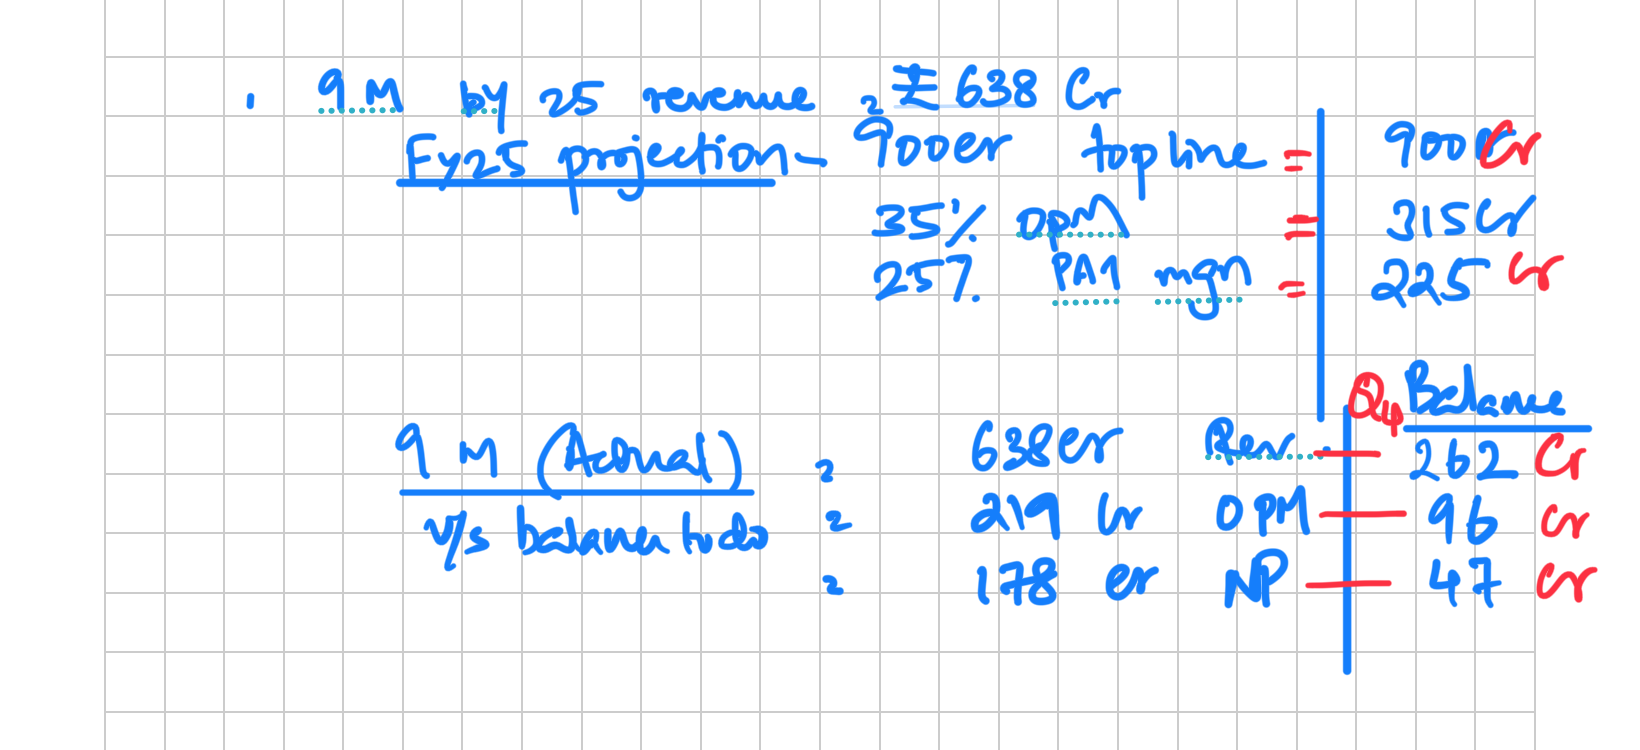 . 9 M by 25 revenue = ₹ 638 Cr
Fy25 projection - 900cr topline = 900 Cr
35% OPM = 315 Cr
25% PAT mgn = 225 Cr
Q4 Balance
9 M (Actual) = 638 cr Rev. — 262 Cr
v/s balance to do = 219 Cr OPM — 96 Cr
= 178 cr NP — 47 Cr